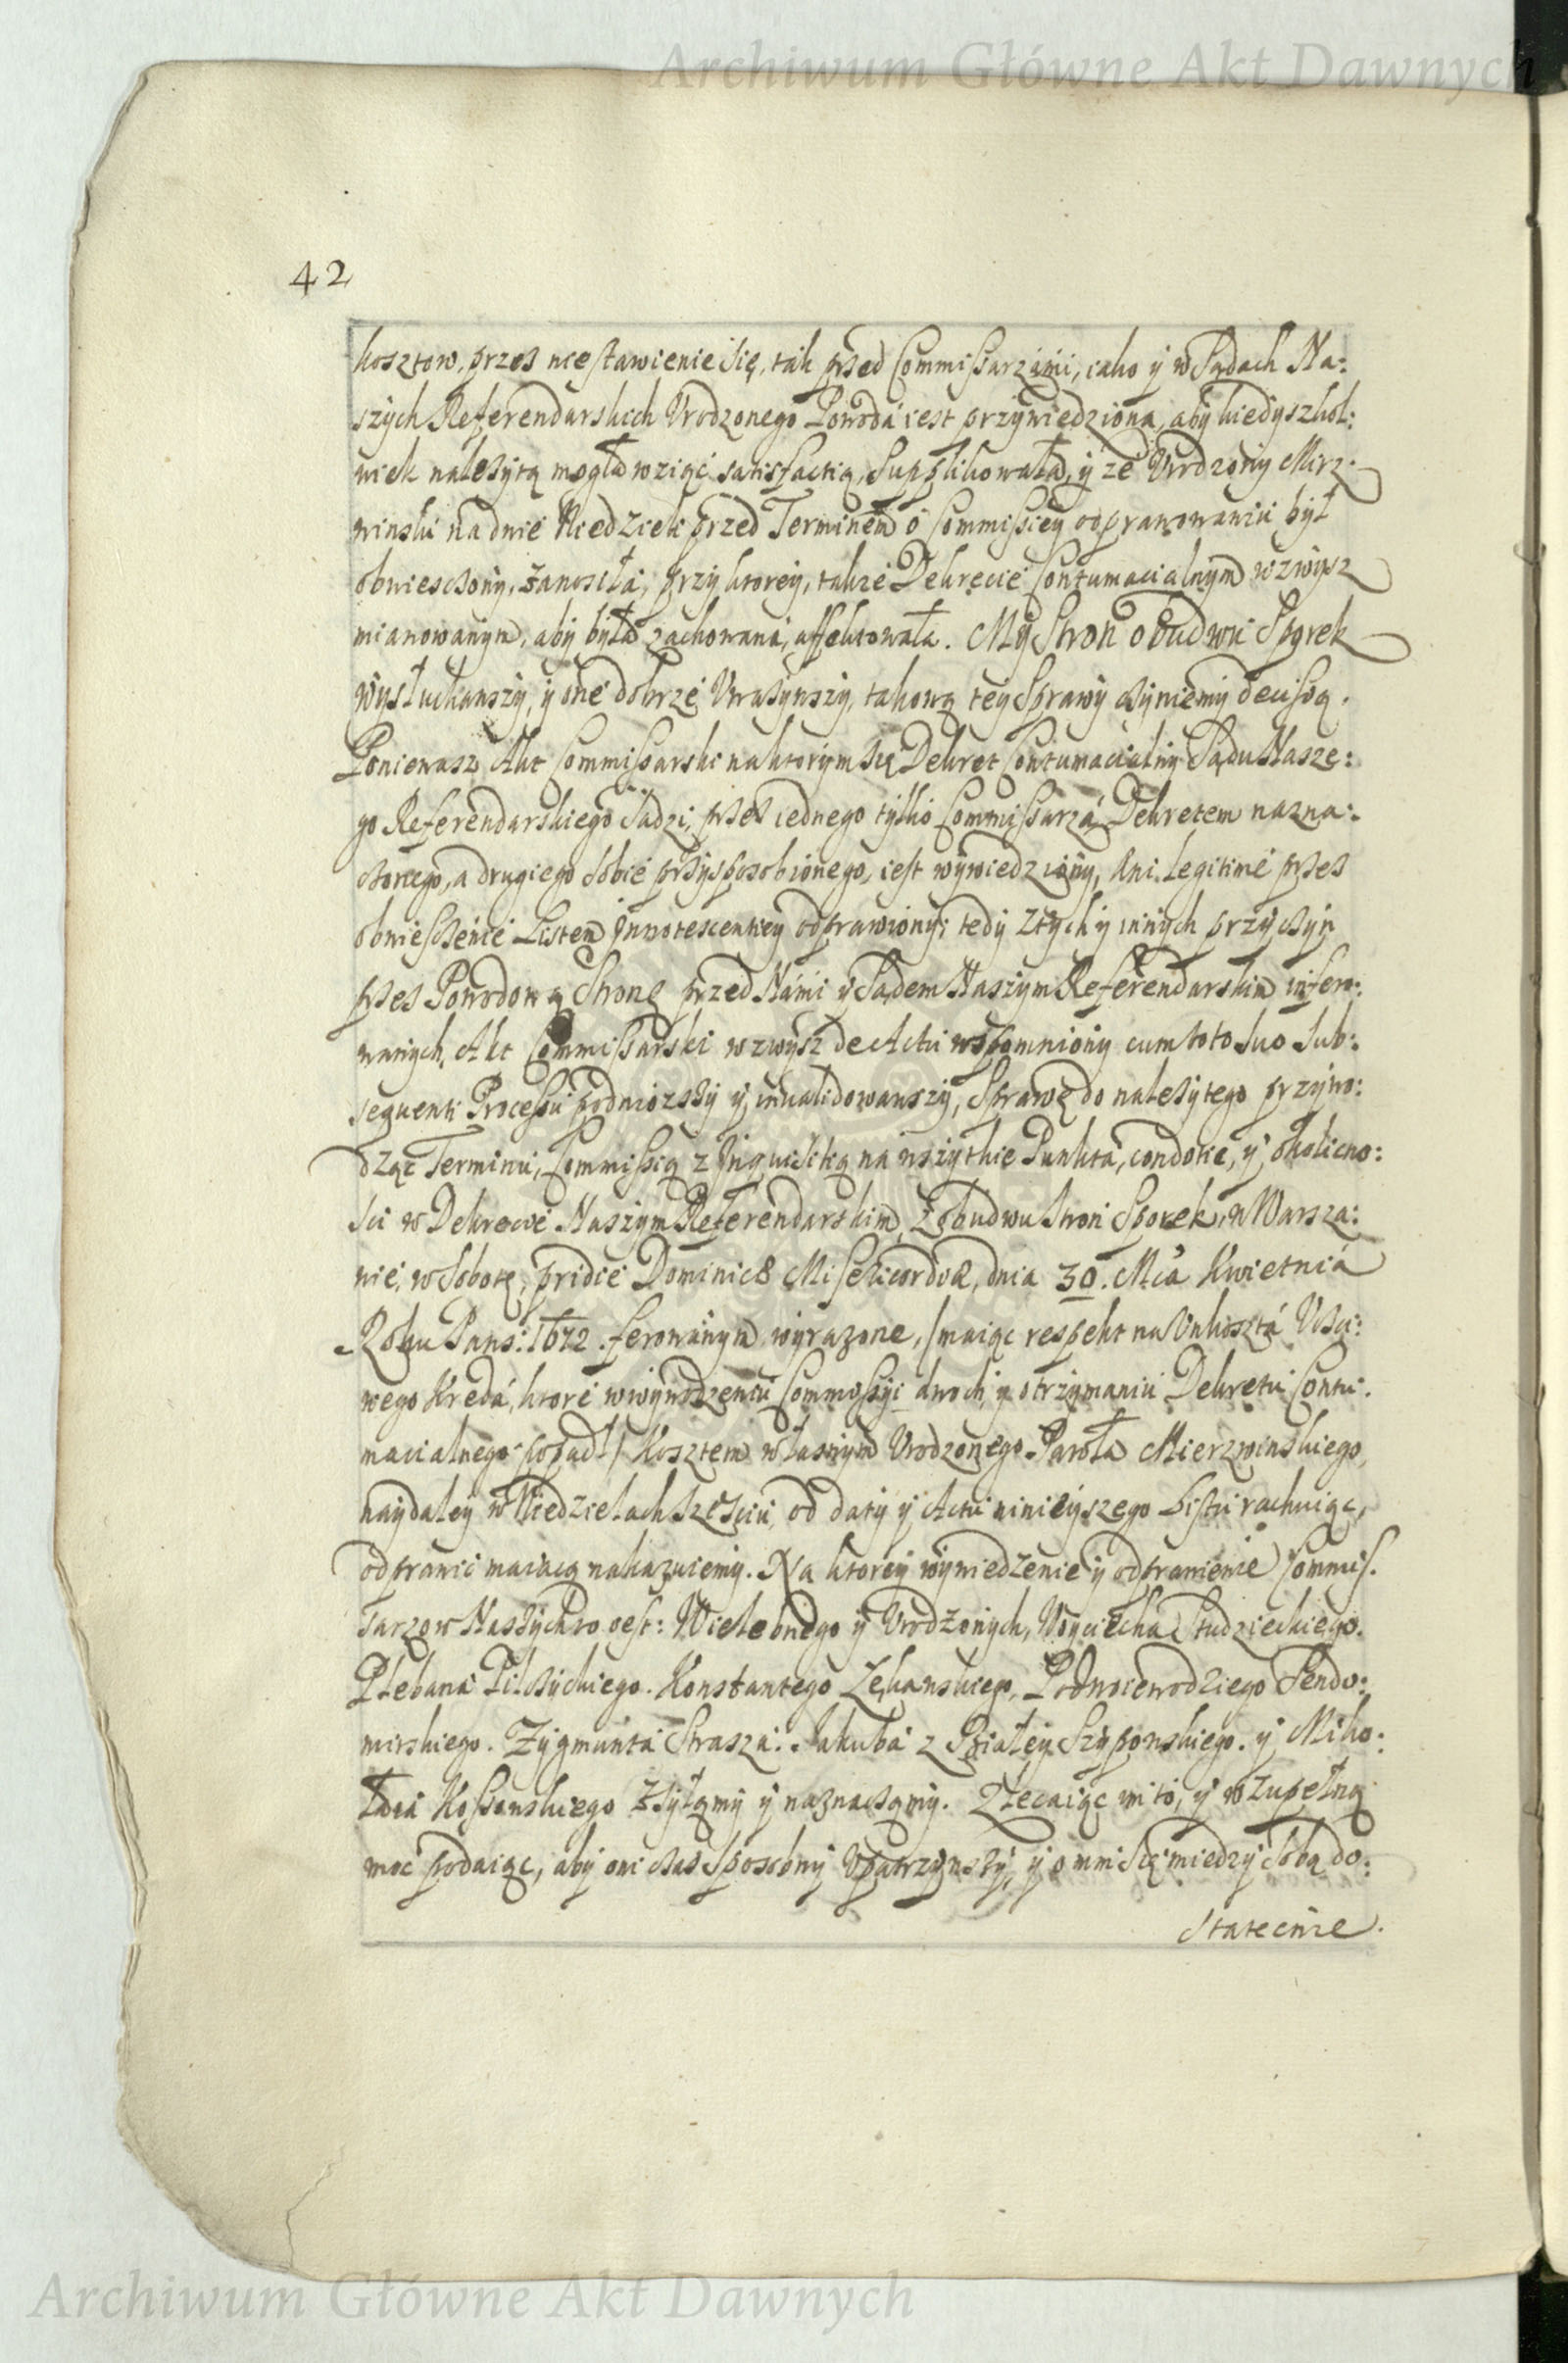 Archiwum Główne Akt Dawnych
42
kosztow, przez nie stawienie się, tak przed Commissarzámi, iako y w Sądach Na:
szych Referendarskich Vrodzonego Powodá iest przywiedziona, aby kiedyszkol:
wiek należytą mogła wziąć satisfactią, Supplikowałá, y że Vrodzony Mirz:
winski na dwie Niedziele przed Terminem o Commissiey odprawowaniu był
obwiesczony, zanosiłá, przy ktorey, także Dekrecie Contumacialnym wzwysz
mianowanym, aby była zachowaná, affektowała. My Stron obudwu Sporek
wysłuchawszy, y one dobrze Vważywszy, takową tey Sprawy czyniemy decisią.
Ponieważ Akt Commissarski na ktorym się Dekret Contumacialny Sądu Nasze:
go Referendarskiego Sadzi, przez iednego tylko Commissarzá Dekretem nazna:
czonego, a drugiego sobie przysposobionego, iest wywiedziony, Ani Legitime przez
obwiesczenie Listem Innotescentiey odprawiony; tedy z tych y innych przyczyn
przez Powodową Stronę przed Námi y Sądem Naszym Referendarskim infero:
wanych, Akt Commissarski wzwysz de Actu wspomniony cum toto suo sub:
sequenti Processu podniozszy y inualidowawszy, Sprawę do należytego przywo:
dząc Terminu, Commissią z Inquisitią na wszytkie Punktá, condotie, y okolicno:
sci w Dekrecie Naszym Referendarskim, z obudwu stron Sporek, w Warsza:
wie, w Sobotę, pridie Dominicæ Misericordiæ, dnia 30. Mcá Kwietniá
Roku Pans: 1672. ferowanym wyrazone, /maiąc respekt na Vnkosztá Vsci:
wego Kredá, ktore w wywodzeniu Commissyi dwoch, y otrzymaniu Dekretu Contu:
macialnego popadł/ Kosztem własnym Vrodzonego Páwłá Mierzwinskiego,
naydaley w Niedzielach szesciu, od daty y Actu ninieyszego Listu rachuiąc,
odprawić maiącą nakazuiemy. Na ktorey wywiedzenie y odprawienie Commis:
sarzow Naszych to iest: Wielebnego y Vrodzonych, Woyciecha Studzieckiego.
Plebaná Pilczyckiego. Konstantego Łękawskiego, Podwoiewodziego Sendo:
mirskiego. Zygmuntá Straszá. Jakubá z Białey Szyponskiego. y Miko:
łáiá Kossowskiego zsyłąmy y naznacząmy. Zlecaiąc im to, y w zupełną
moc podaiąc, aby oni czas sposobny Vpatrzywszy, y o nim się miedzy sobą do:
statecnie.
Archiwum Główne Akt Dawnych